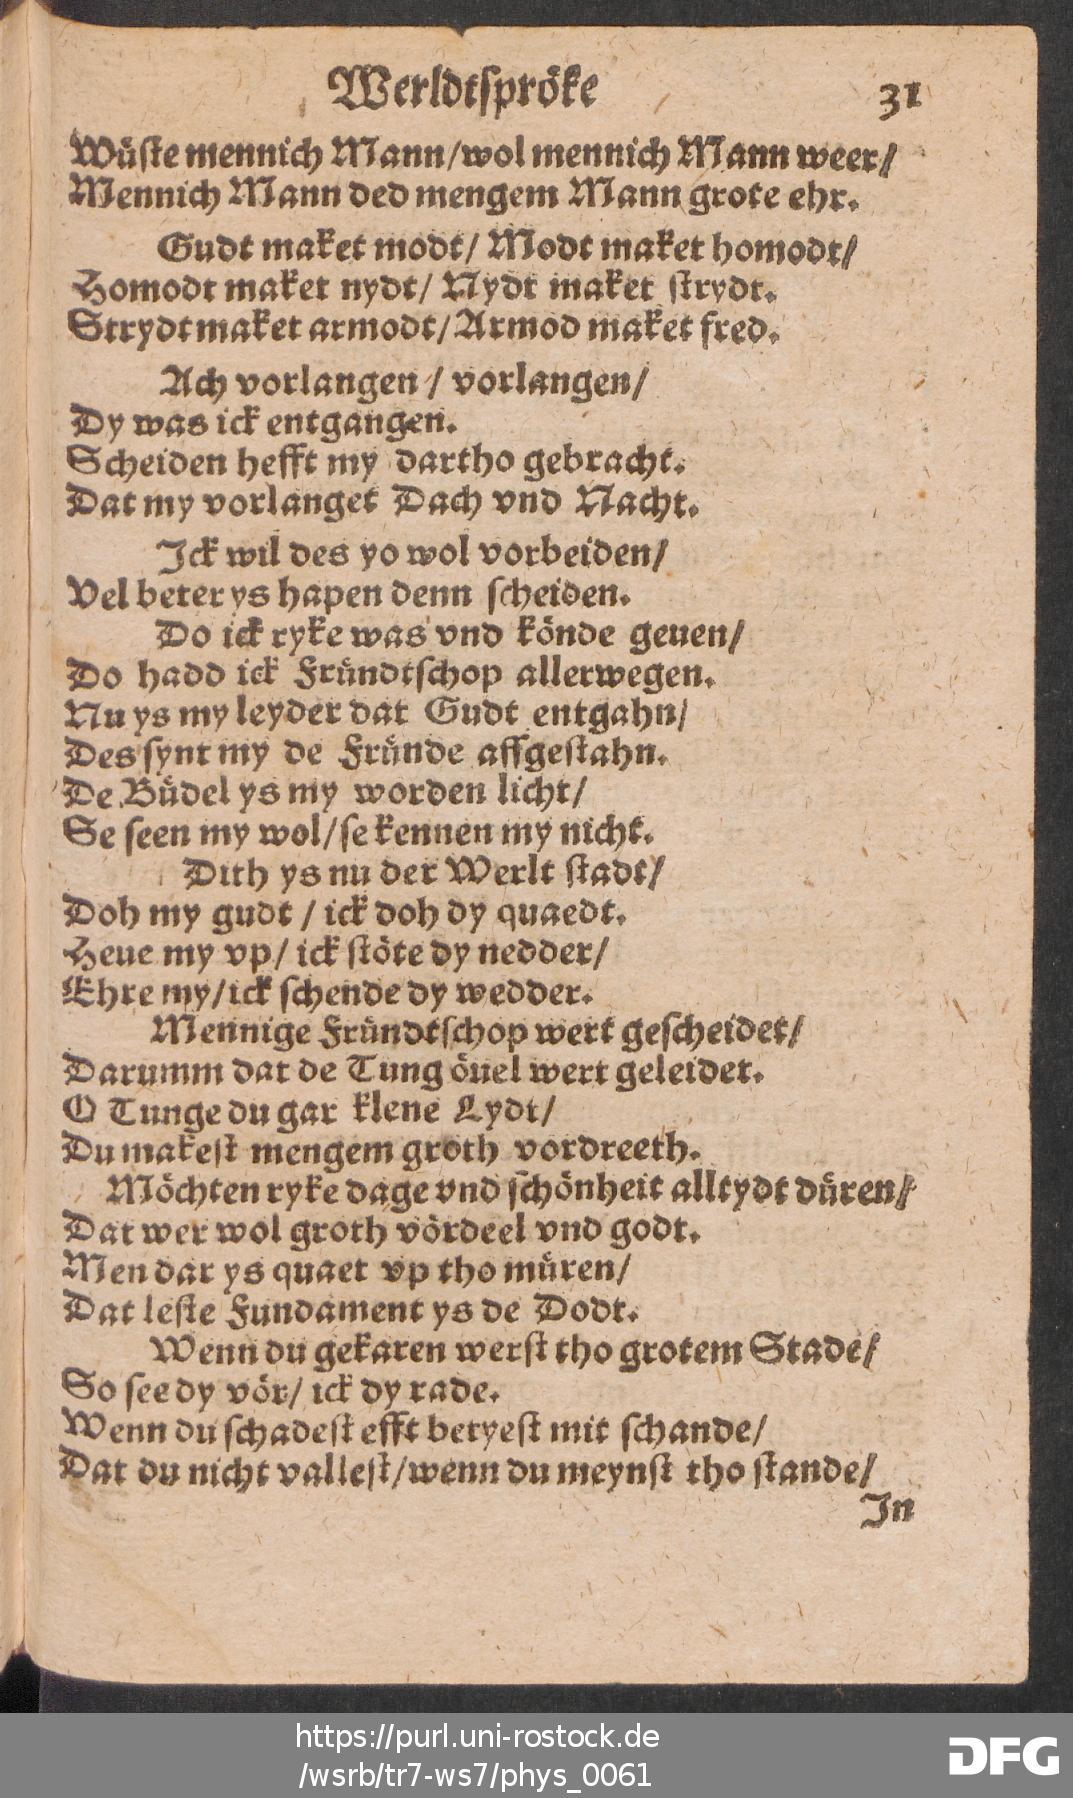 Werldtspröke 31
Wüste mennich Mann/wol mennich Mann weer/
Mennich Mann ded mengem Mann grote ehr.
Gudt maket modt/ Modt maket homodt/
Homodt maket nydt/ Nydt maket strydt.
Strydt maket armodt/Armod maket fred.
Ach vorlangen / vorlangen/
Dy was ick entgangen.
Scheiden hefft my dartho gebracht.
Dat my vorlanget Dach vnd Nacht.
Ick wil des yo wol vorbeiden/
Vel beter ys hapen denn scheiden.
Do ick ryke was vnd könde geuen/
Do hadd ick Fründtschop allerwegen.
Nu ys my leyder dat Gudt entgahn/
Des synt my de Fründe affgestahn.
De Büdel ys my worden licht/
Se seen my wol/se kennen my nicht.
Dith ys nu der Werlt stadt/
Doh my gudt / ick doh dy quaedt.
Heue my vp/ ick stöte dy nedder/
Ehre my/ick schende dy wedder.
Mennige Fründtschop wert gescheidet/
Darumm dat de Tung öuel wert geleidet.
O Tunge du gar klene Lydt/
Du makest mengem groth vordreeth.
Möchten ryke dage vnd schönheit alltydt düren/
Dat wer wol groth vördeel vnd godt.
Men dar ys quaet vp tho müren/
Dat leste Fundament ys de Dodt.
Wenn du gekaren werst tho grotem Stade/
So see dy vör/ ick dy rade.
Wenn du schadest efft beryest mit schande/
Dat du nicht vallest/wenn du meynst tho stande/
In
https://purl.uni-rostock.de
/wsrb/tr7-ws7/phys_0061
DFG